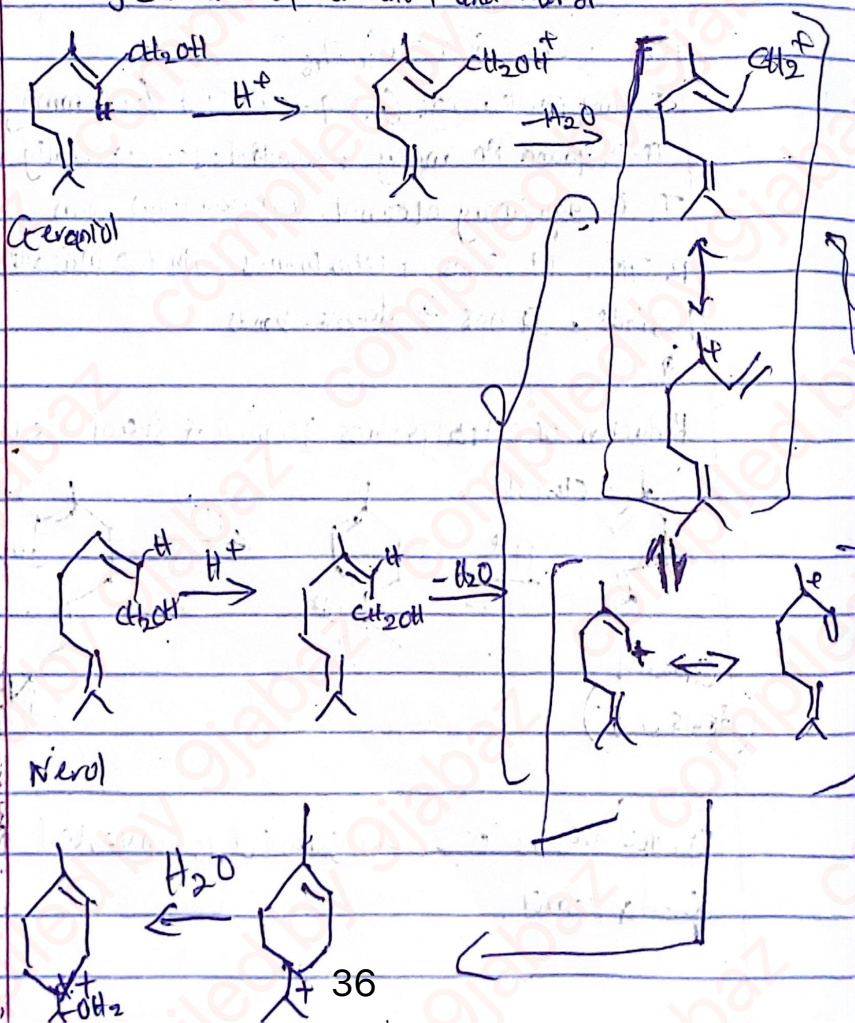 CH2OH
H
H+
CH2OH+
-H2O
CH2+
Geraniol
+
H
H+
H
-H2O
CH2OH
CH2OH
+
+
Nerol
H2O
+
+
OH2
36
compiled by 9jabaz